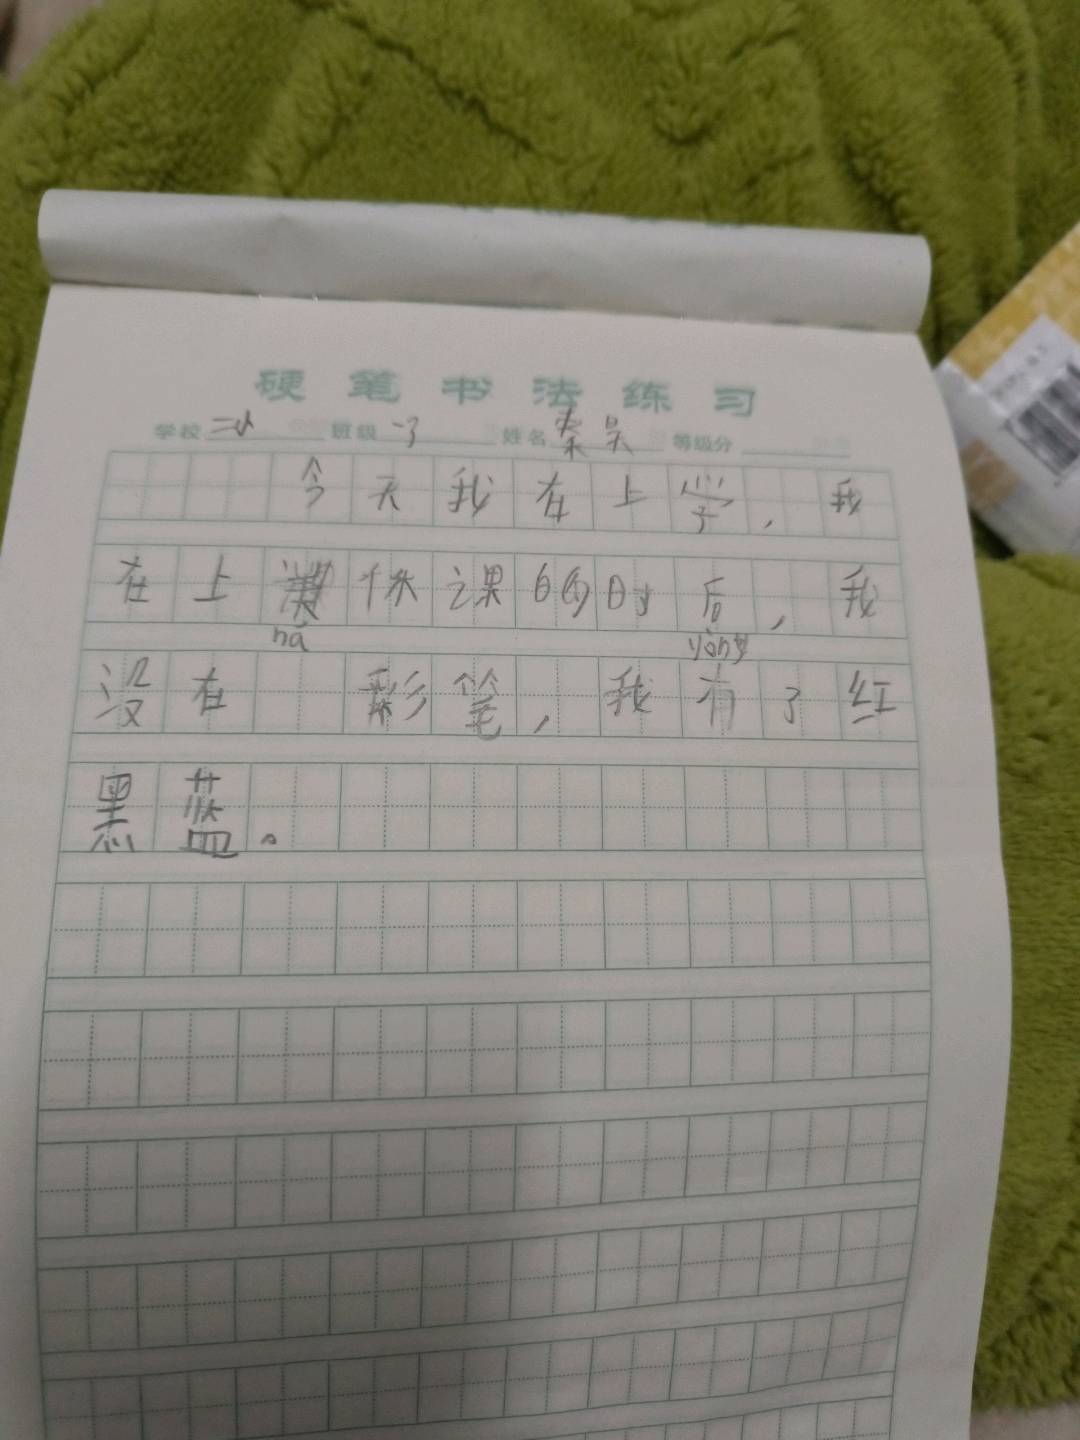 硬笔书法练习
学校 二小 班级 一3 姓名 秦昊 等级分
今天我在上学，我
在上快课的时后，我
ná yòng
没在 彩笔，我有了红
黑蓝。